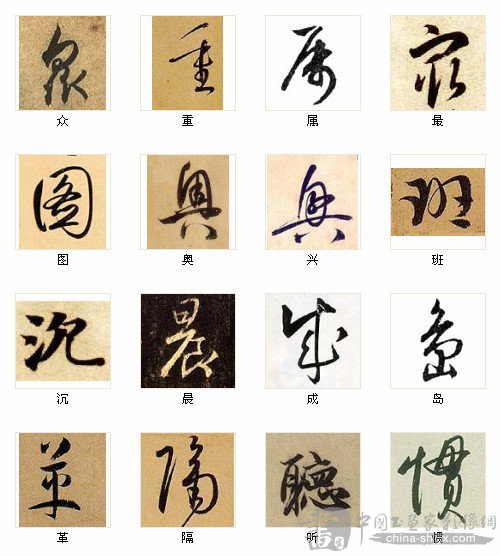 众 重 属 最
图 奥 兴 班
沉 晨 成 岛
革 隔 听 惯
中国书画家礼像网
china-shjlx.com